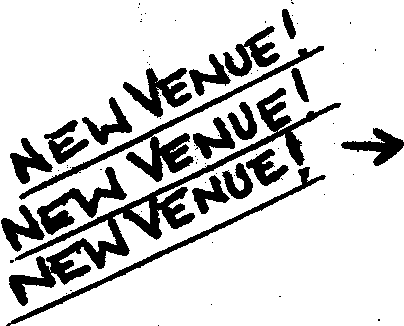 NEW VENUE!
NEW VENUE!
NEW VENUE! →